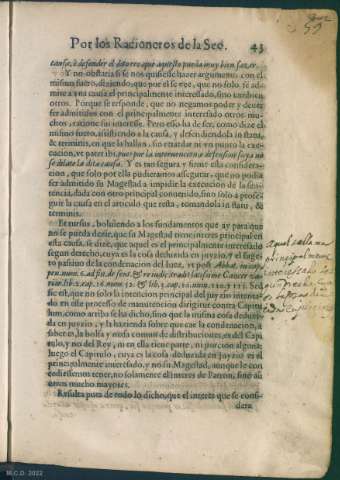 Por los Racioneros de la Seo. 43
causa, ò defender el
Y no obstaria si se nos quisiesse hazer argumento con el
mismo fuero, diziendo, que por el se vee, que no solo se ad-
mite a vna causa el principalmente interessado, sino tambien
otros. Porque se responde, que no negamos poder y deuer
ser admitidos con el principalmente interessado otros mu-
chos, ratione sui interesse. Pero esso ha de ser, como dize el
mismo fuero, assistiendo a la causa, y defendiendola in statu,
& terminis, en que la hallan, sin retardar ni vn punto la exe-
cucion, vt patet ibi, pues por la
se dilate la dita causa. Y es tan segura y firme esta considera-
cion, que solo por ella pudieramos assegurar, que no podia
ser admitido su Magestad a impidir la execucion de la sen-
tencia, dada con otro principal contendor, sino solo a prose-
guir la causa en el articulo que resta, tomandola in statu, &
terminis.
Et rursus, boluiendo a los fundamentos que ay para que
no se pueda dezir, que su Magestad tiene interes principal en
esta causa, se dize, que aquel es el principalmente interessado
segun derecho, cuya es la cosa deduzida en juyzio, y el suge-
to passiuo de la condenacion del Iuez, vt post Abbat. in cap.
sic est, que no solo la intencion principal del juyzio intenta-
do en este processo de manutencion dirigirse contra Capitu-
lum, como arriba se ha dicho, sino que la misma cosa deduzi-
da en juyzio, y la hazienda sobre que cae la condenacion, a
saber es, la bolsa y mesa comun de distribuciones, es del Capi-
tulo, y no del Rey, ni en ella tiene parte, ni porcion alguna:
luego el Capitulo, cuya es la cosa deduzida en juyzio es el
principalmente interessado, y no su Magestad, aunque le con-
cediessemos tener, no solamente el interes de Patron, sino aun
otros mucho mayores.
Resulta pues de todo lo dicho, que el interes que se consi-
dera
M.C.D. 2022